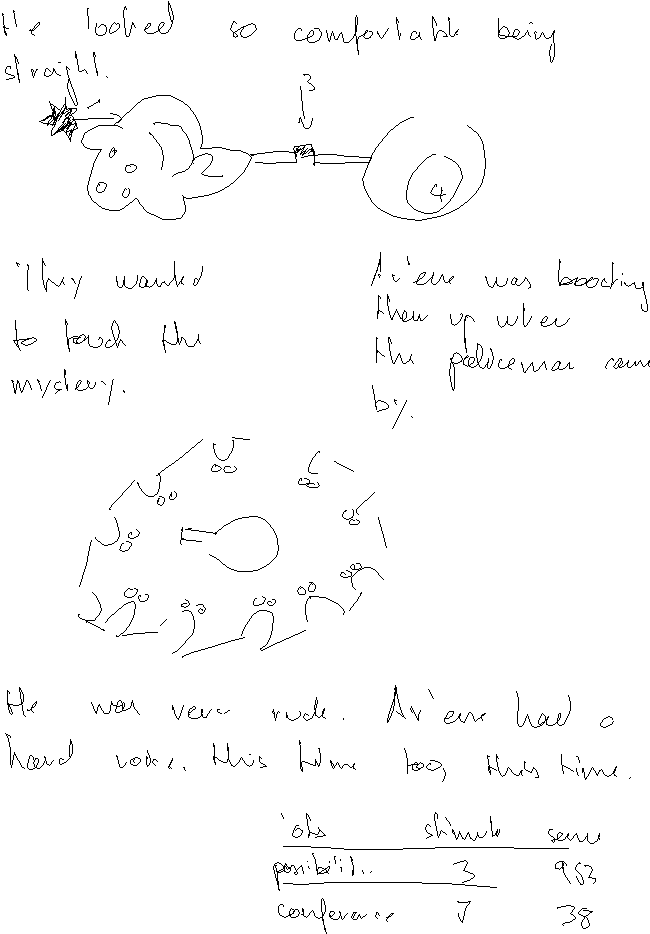 He looked so comfortable being
straight.
3
2
4
They wanted
to touch the
mystery.
Ar'ene was boosting
them up when
the policeman came
by.
He was very rude. Ar'ene had a
hard voice. this time too, this time.
3 953
conference 7 38